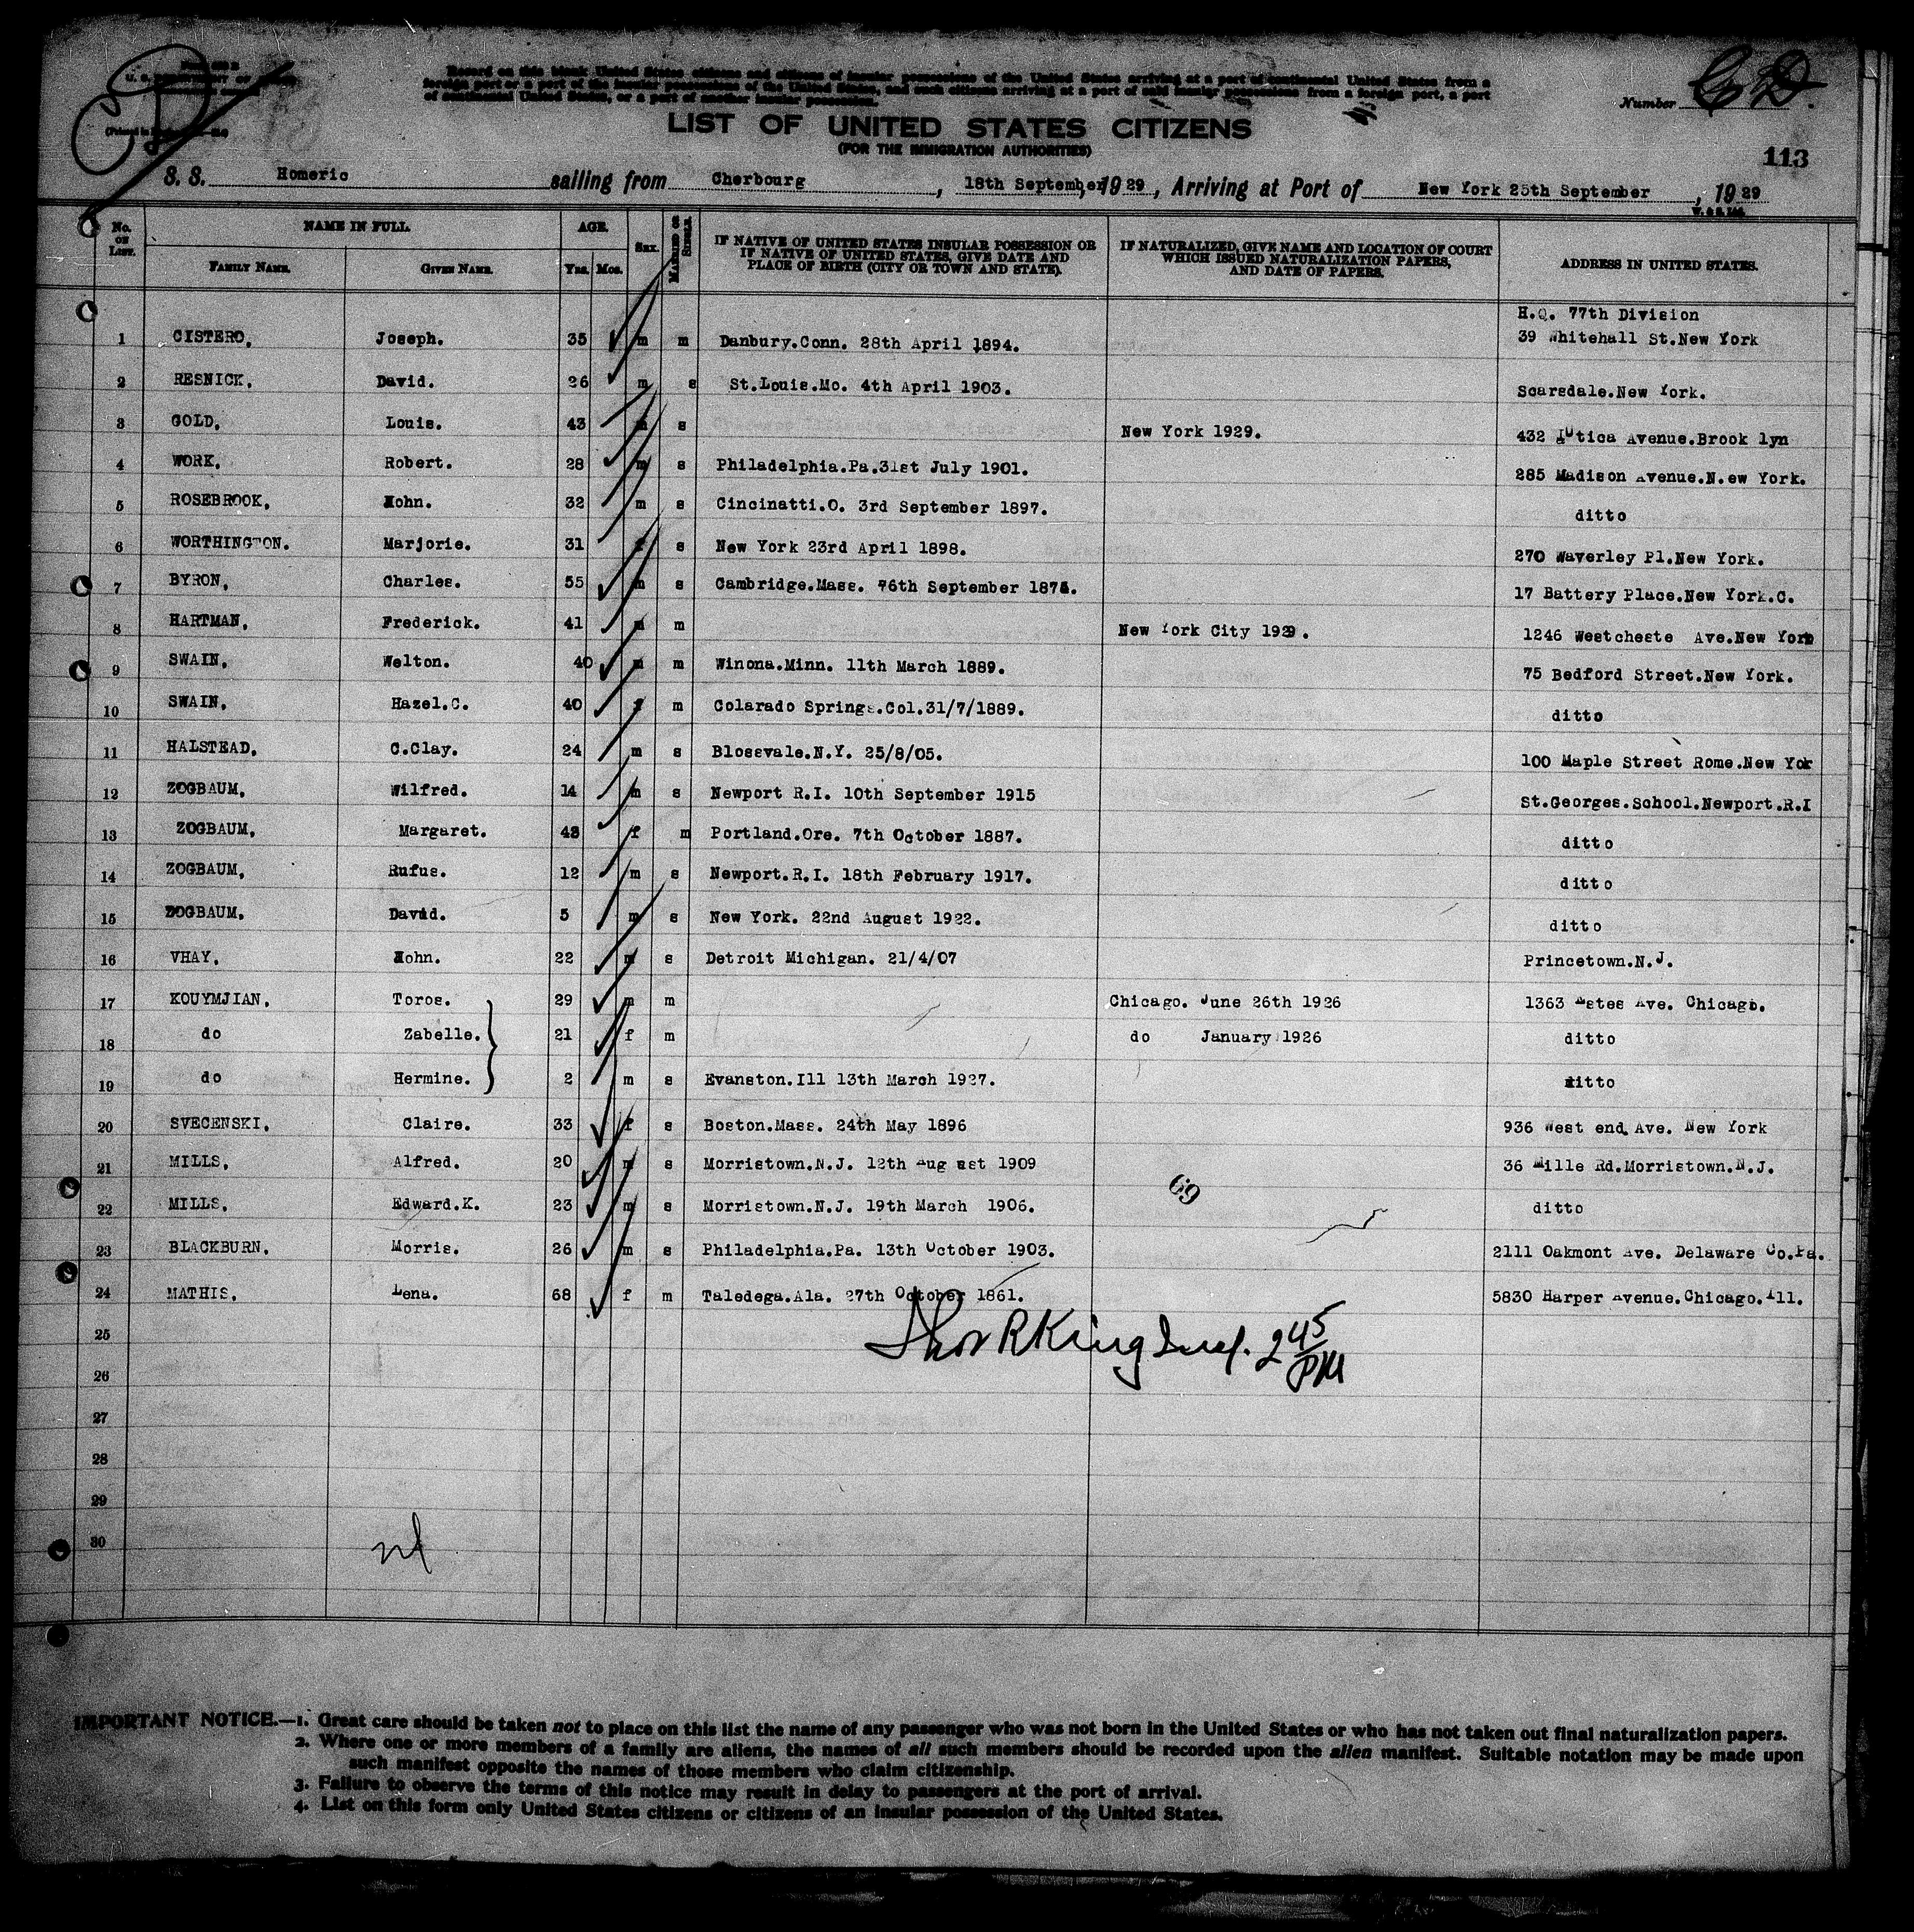 Record on this blank United States citizens and citizens of insular possessions of the United States arriving at a port of continental United States from a
foreign port or a port of the insular possessions of the United States, and such citizens arriving at a port of said insular possessions from a foreign port, a port
of continental United States, or a port of another insular possession.
Number
LIST OF UNITED STATES CITIZENS
(FOR THE IMMIGRATION AUTHORITIES)
113
S. S. Homeric sailing from Cherbourg, 18th September, 1929, Arriving at Port of New York 25th September, 1929
No. on List. NAME IN FULL. AGE. Sex. Married or Single. IF NATIVE OF UNITED STATES INSULAR POSSESSION OR IF NATIVE OF UNITED STATES, GIVE DATE AND PLACE OF BIRTH (CITY OR TOWN AND STATE). IF NATURALIZED, GIVE NAME AND LOCATION OF COURT WHICH ISSUED NATURALIZATION PAPERS, AND DATE OF PAPERS. ADDRESS IN UNITED STATES.
Family Name. Given Name. Yrs. Mos.
H.Q. 77th Division
1 CISTERO, Joseph. 35 m m Danbury.Conn. 28th April 1894. 39 Whitehall St.New York
2 RESNICK, David. 26 m s St.Louis.Mo. 4th April 1903. Scarsdale.New York.
3 GOLD, Louis. 43 s New York 1929. 432 Utica Avenue.Brook lyn
4 WORK, Robert. 28 m s Philadelphia.Pa.31st July 1901. 285 Madison Avenue.N.ew York.
5 ROSEBROOK, John. 32 m s Cincinatti.O. 3rd September 1897. ditto
6 WORTHINGTON. Marjorie. 31 f s New York 23rd April 1898. 270 Waverley Pl.New York.
7 BYRON, Charles. 55 m s Cambridge.Mass. September 17 Battery Place.New York.C.
8 HARTMAN, Frederick. 41 m m New York City 1929. 1246 Westcheste Ave.New York
9 SWAIN, Welton. 40 m m Winona.Minn. 11th March 1889. 75 Bedford Street.New York.
10 SWAIN, Hazel.C. 40 f m Colarado Springs.Col.31/7/1889. ditto
11 HALSTEAD, C.Clay. 24 m s Blossvale.N.Y. 25/8/05. 100 Maple Street Rome.New Yor
12 ZOGBAUM, Wilfred. 14 m s Newport R.I. 10th September 1915 St.Georges.School.Newport.R.I
13 ZOGBAUM, Margaret. 43 f m Portland.Ore. 7th October 1887. ditto
14 ZOGBAUM, Rufus. 12 m s Newport.R.I. 18th February 1917. ditto
15 ZOGBAUM, David. 5 m s New York. 22nd August 1922. ditto
16 VHAY, John. 22 m s Detroit Michigan. 21/4/07 Princetown.N.J.
17 KOUYMJIAN, Toros. 29 m m Chicago. June 26th 1926 1363 Estes Ave. Chicago.
18 do Zabelle. 21 f m do January 1926 ditto
19 do Hermine. 2 m s Evanston.Ill 13th March 1927. ditto
20 SVECENSKI, Claire. 33 f s Boston.Mass. 24th May 1896 936 West end. Ave. New York
21 MILLS, Alfred. 20 m s Morristown.N.J. 12th Aug ust 1909 36 Mille Rd.Morristown.N.J.
22 MILLS, Edward.K. 23 m s Morristown.N.J. 19th March 1906. 69 ditto
23 BLACKBURN, Morris. 26 m s Philadelphia.Pa. 13th October 1903. 2111 Oakmont Ave. Delaware Co.Pa.
24 MATHIS, Lena. 68 f m Taledega.Ala. 27th October 1861. 5830 Harper Avenue.Chicago.Ill.
25
Thos R King Insp. 2 45 PM
26
27
28
29
30
IMPORTANT NOTICE.—1. Great care should be taken not to place on this list the name of any passenger who was not born in the United States or who has not taken out final naturalization papers.
2. Where one or more members of a family are aliens, the names of all such members should be recorded upon the alien manifest. Suitable notation may be made upon
such manifest opposite the names of those members who claim citizenship.
3. Failure to observe the terms of this notice may result in delay to passengers at the port of arrival.
4. List on this form only United States citizens or citizens of an insular possession of the United States.